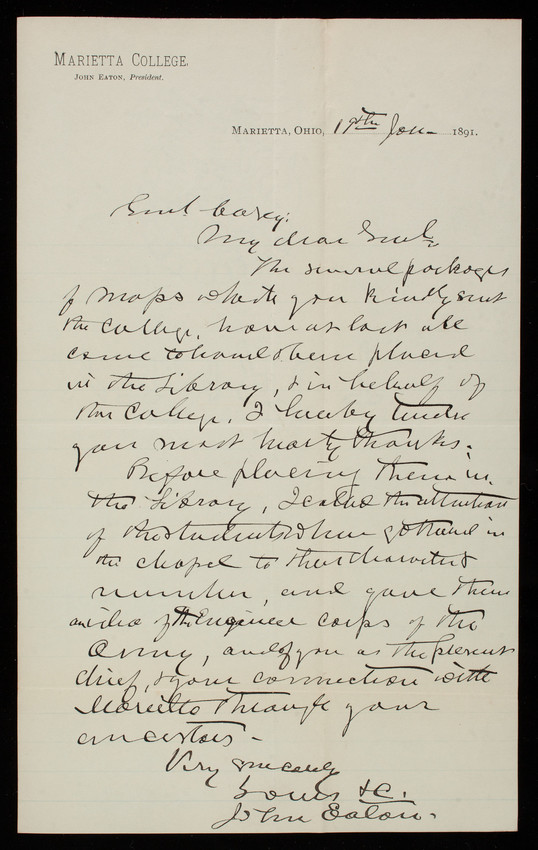 MARIETTA COLLEGE.
JOHN EATON, President.
MARIETTA, OHIO, 19th Jan- 1891.
Genl Casey:
My dear Genl,
The several packages
of maps which you kindly sent
the college, have at last all
come to hand & been placed
in the Library, & in behalf of
the College, I hereby tender
you most hearty thanks.
Before placing them in
the Library, I called the attention
of the students when gathered in
the chapel to their character &
number, and gave them
an idea of the Engineer corps of the
Army, and of you as the present
chief, & your connection with
Marietta through your
ancestors -
Very sincerely
Yours &c.
John Eaton.